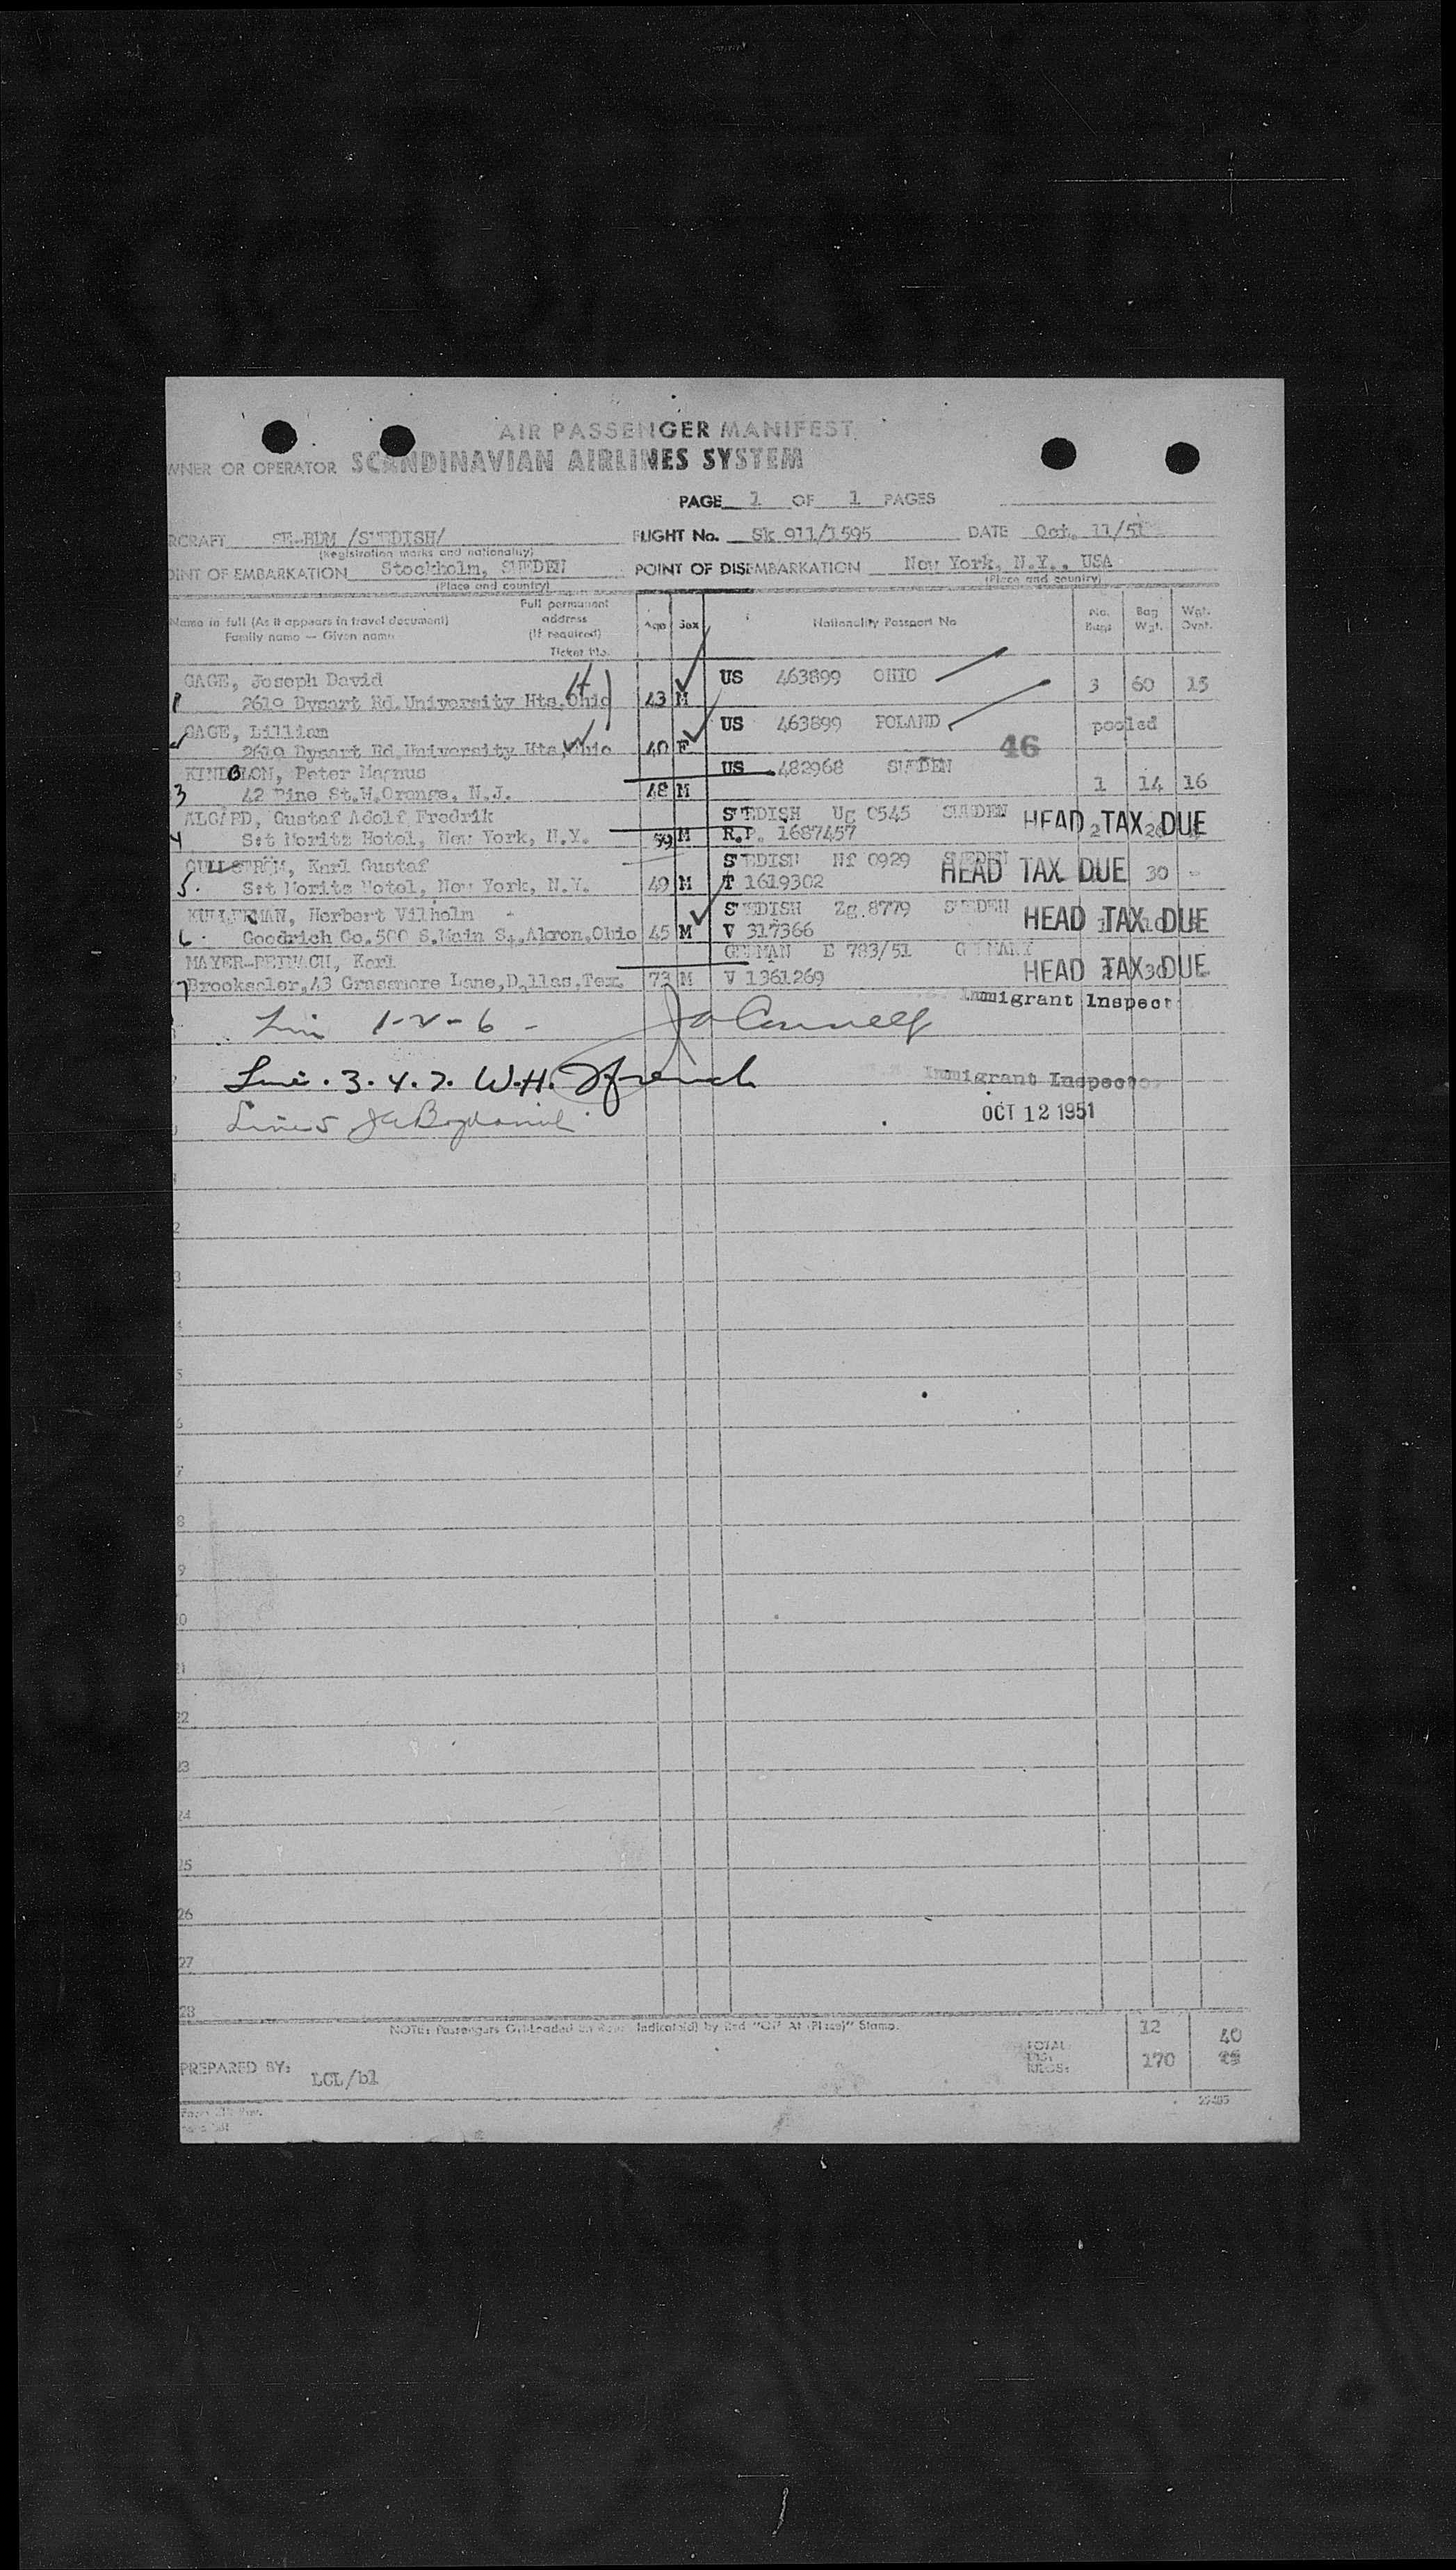 AIR PASSENGER MANIFEST
WNER OR OPERATOR SCANDINAVIAN AIRLINES SYSTEM
PAGE 1 OF 1 PAGES
RCRAFT SE-BDM /SWEDISH/ FLIGHT No. Sk 911/1595 DATE Oct. 11/51
(Registration marks and nationality)
OINT OF EMBARKATION Stockholm, SWEDEN POINT OF DISEMBARKATION New York, N.Y., USA
(Place and country) (Place and country)
Name in full (As it appears in travel document) Full permanent address (If required) Age Sex Nationality Passport No No. Bags Bag Wgt. Wgt. Ovnt.
Family name — Given name Ticket No.
GAGE, Joseph David US 463899 OHIO
1 2619 Dysart Rd.University Hts.Ohio 43 M 3 60 15
GAGE, Lillian US 463899 POLAND pooled
2619 Dysart Rd.University Hts,Ohio 40 F 46
KINDBLOM, Peter Magnus US 482968 SWEDEN
3 42 Pine St.W.Orange, N.J. 48 M 1 14 16
ALGÅRD, Gustaf Adolf Fredrik SWEDISH Ug 0545 SWEDEN HEAD TAX DUE
4 S:t Moritz Hotel, New York, N.Y. 59 M R.P. 1687457
GULLSTRÖM, Karl Gustaf SWEDISH Nf 0929 SWEDEN HEAD TAX DUE
5. S:t Moritz Hotel, New York, N.Y. 49 M T 1619302 30 -
Herbert Vilhelm - SWEDISH Zg 8779 SWEDEN HEAD TAX DUE
6. Goodrich Co.500 S.Main St,Akron,Ohio 45 M V 317366
MAYER-REINACH, Karl GERMAN E 783/51 GERMANY HEAD TAX DUE
7 43 Grassmere Lane,Dallas,Tex. 73 M V 1361269
Immigrant Inspect
Lin 1-2-6 -
Line. 3.4.7. W.H. French Immigrant Inspector
Line 5 OCT 12 1951
2
3
5
6
7
8
9
0
21
22
23
24
25
26
27
28
NOTE: Passengers Off-Loaded Indicat(ed) by Red "Off At (Place)" Stamp. 12 40
TOTAL KILOS: 170
PREPARED BY: LCL/bl